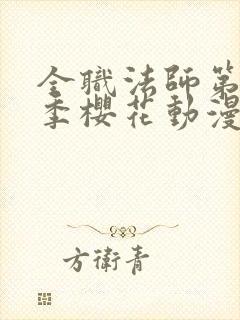 全職法師第
季櫻花動漫
方衛青